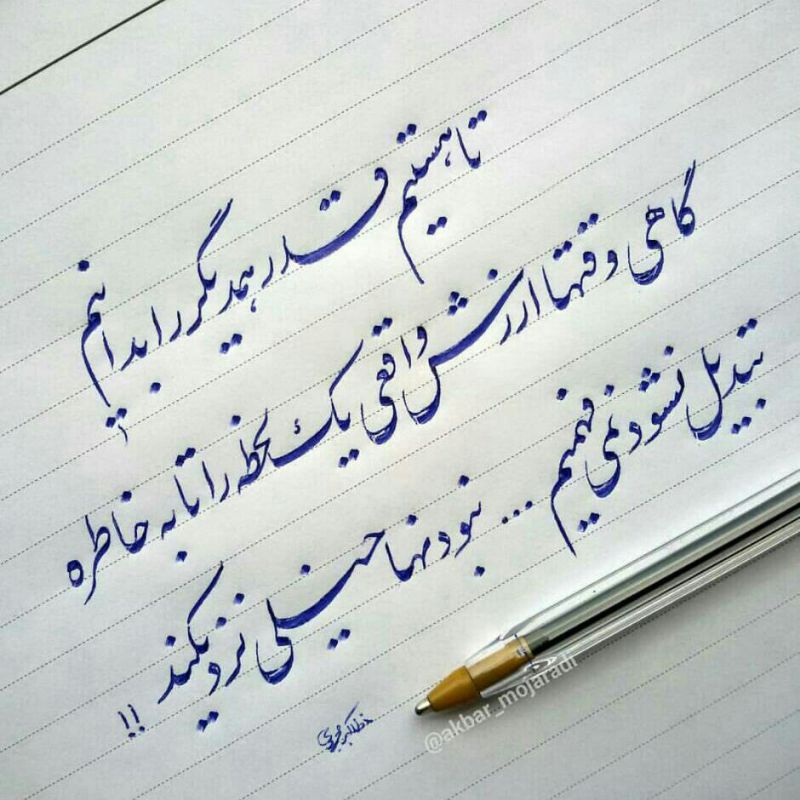 تا هستیم قدر همدیگر را بدانیم
گاهی وقتها ارزش واقعی یک لحظه را تا به خاطره
تبدیل نشود نمی فهمیم ... نبودنها خیلی نزدیکند !!
خط اکبر مجردی
@akbar_mojaradi